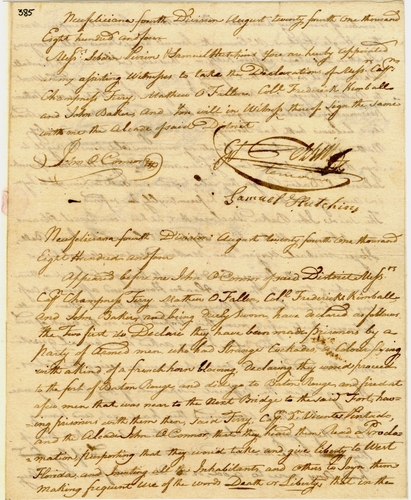 385
Newfeliciana fourth Division August twenty fourth one thousand
Eight hundred and four
Messrs. & Samuel Hutchins You are hereby appointed
Witnesses to take the Declaration of Messrs. Capn.
Champness Terry Mathew O Fallon, Coll. Frederick Kimball
and John Baker, And You will in Witness thereof Sign the Same
with me the Alcade of said District
John O Connor
Samuel Hutchins
Newfeliciana fourth Division August twenty fourth one thousand
Eight Hundred and four
Appeared before me John O Connor said District Messrs.
Capn. Champness Terry Mathew O Fallon, Coll. Frederick Kimball
and John Baker, and being duly Sworn have declared as follows
the Two first do Declare they have been made Prisoners by a
party of Armed men who had Strange Cockades & Colours
with a kind of a french horn blowing, Declaring they would proceed
to the fort of Baton Rouge, and did go to Baton Rouge, and fired at
a few men that was near to the Bridge to the said Fort, hav-
ing prisoners with them then, said Terry, Capn.
and the Alcade John O Connor, that they heard them Read a Procla-
mation, purporting that they would take and give Liberty to West
Florida, and inviting all the Inhabitants and others to Joyn them
making frequent Use of the words Death or Liberty, that in the